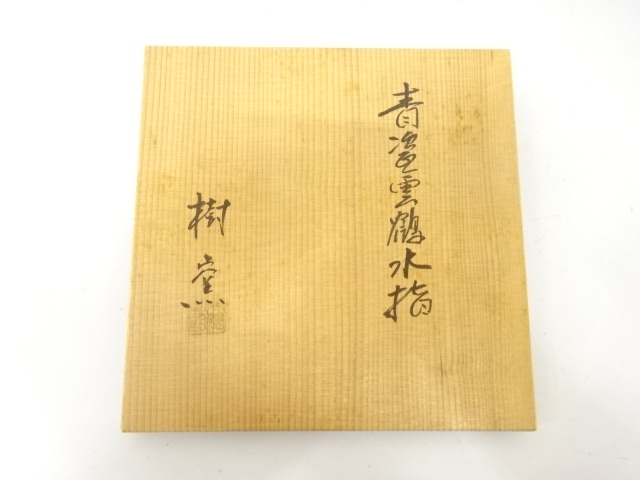 青瓷雲鶴水指
樹窯